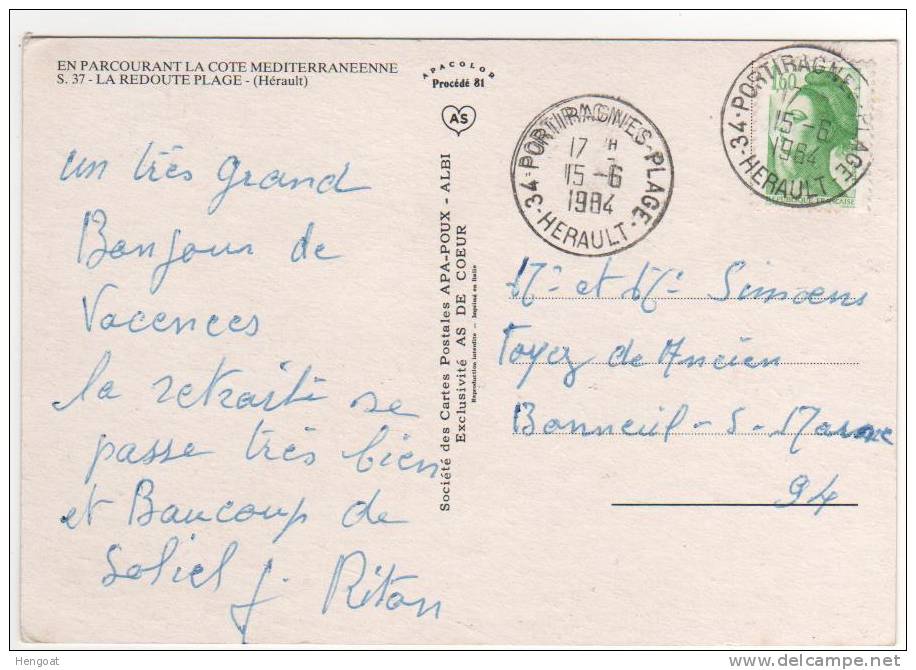 EN PARCOURANT LA COTE MEDITERRANEENNE
S. 37 - LA REDOUTE PLAGE - (Hérault)
APACOLOR
Procédé 81
AS
un très grand
Bonjour de
Vacences
la retraite se
passe très bien
et Baucoup de
Soliel J. Riton
Société des Cartes Postales APA-POUX - ALBI
Exclusivité AS DE COEUR
Reproduction interdite - Imprimé en Italie
34-PORTIRAGNES-PLAGE-HERAULT
17 H
15-6
1984
34-PORTIRAGNES-PLAGE-HERAULT
15-6
1984
1,60
REPUBLIQUE FRANCAISE
Mr et Me Simoens
Foyez de Ancien
Bonneuil-S-Marne
94
Hengoat
http://www.delcampe.net